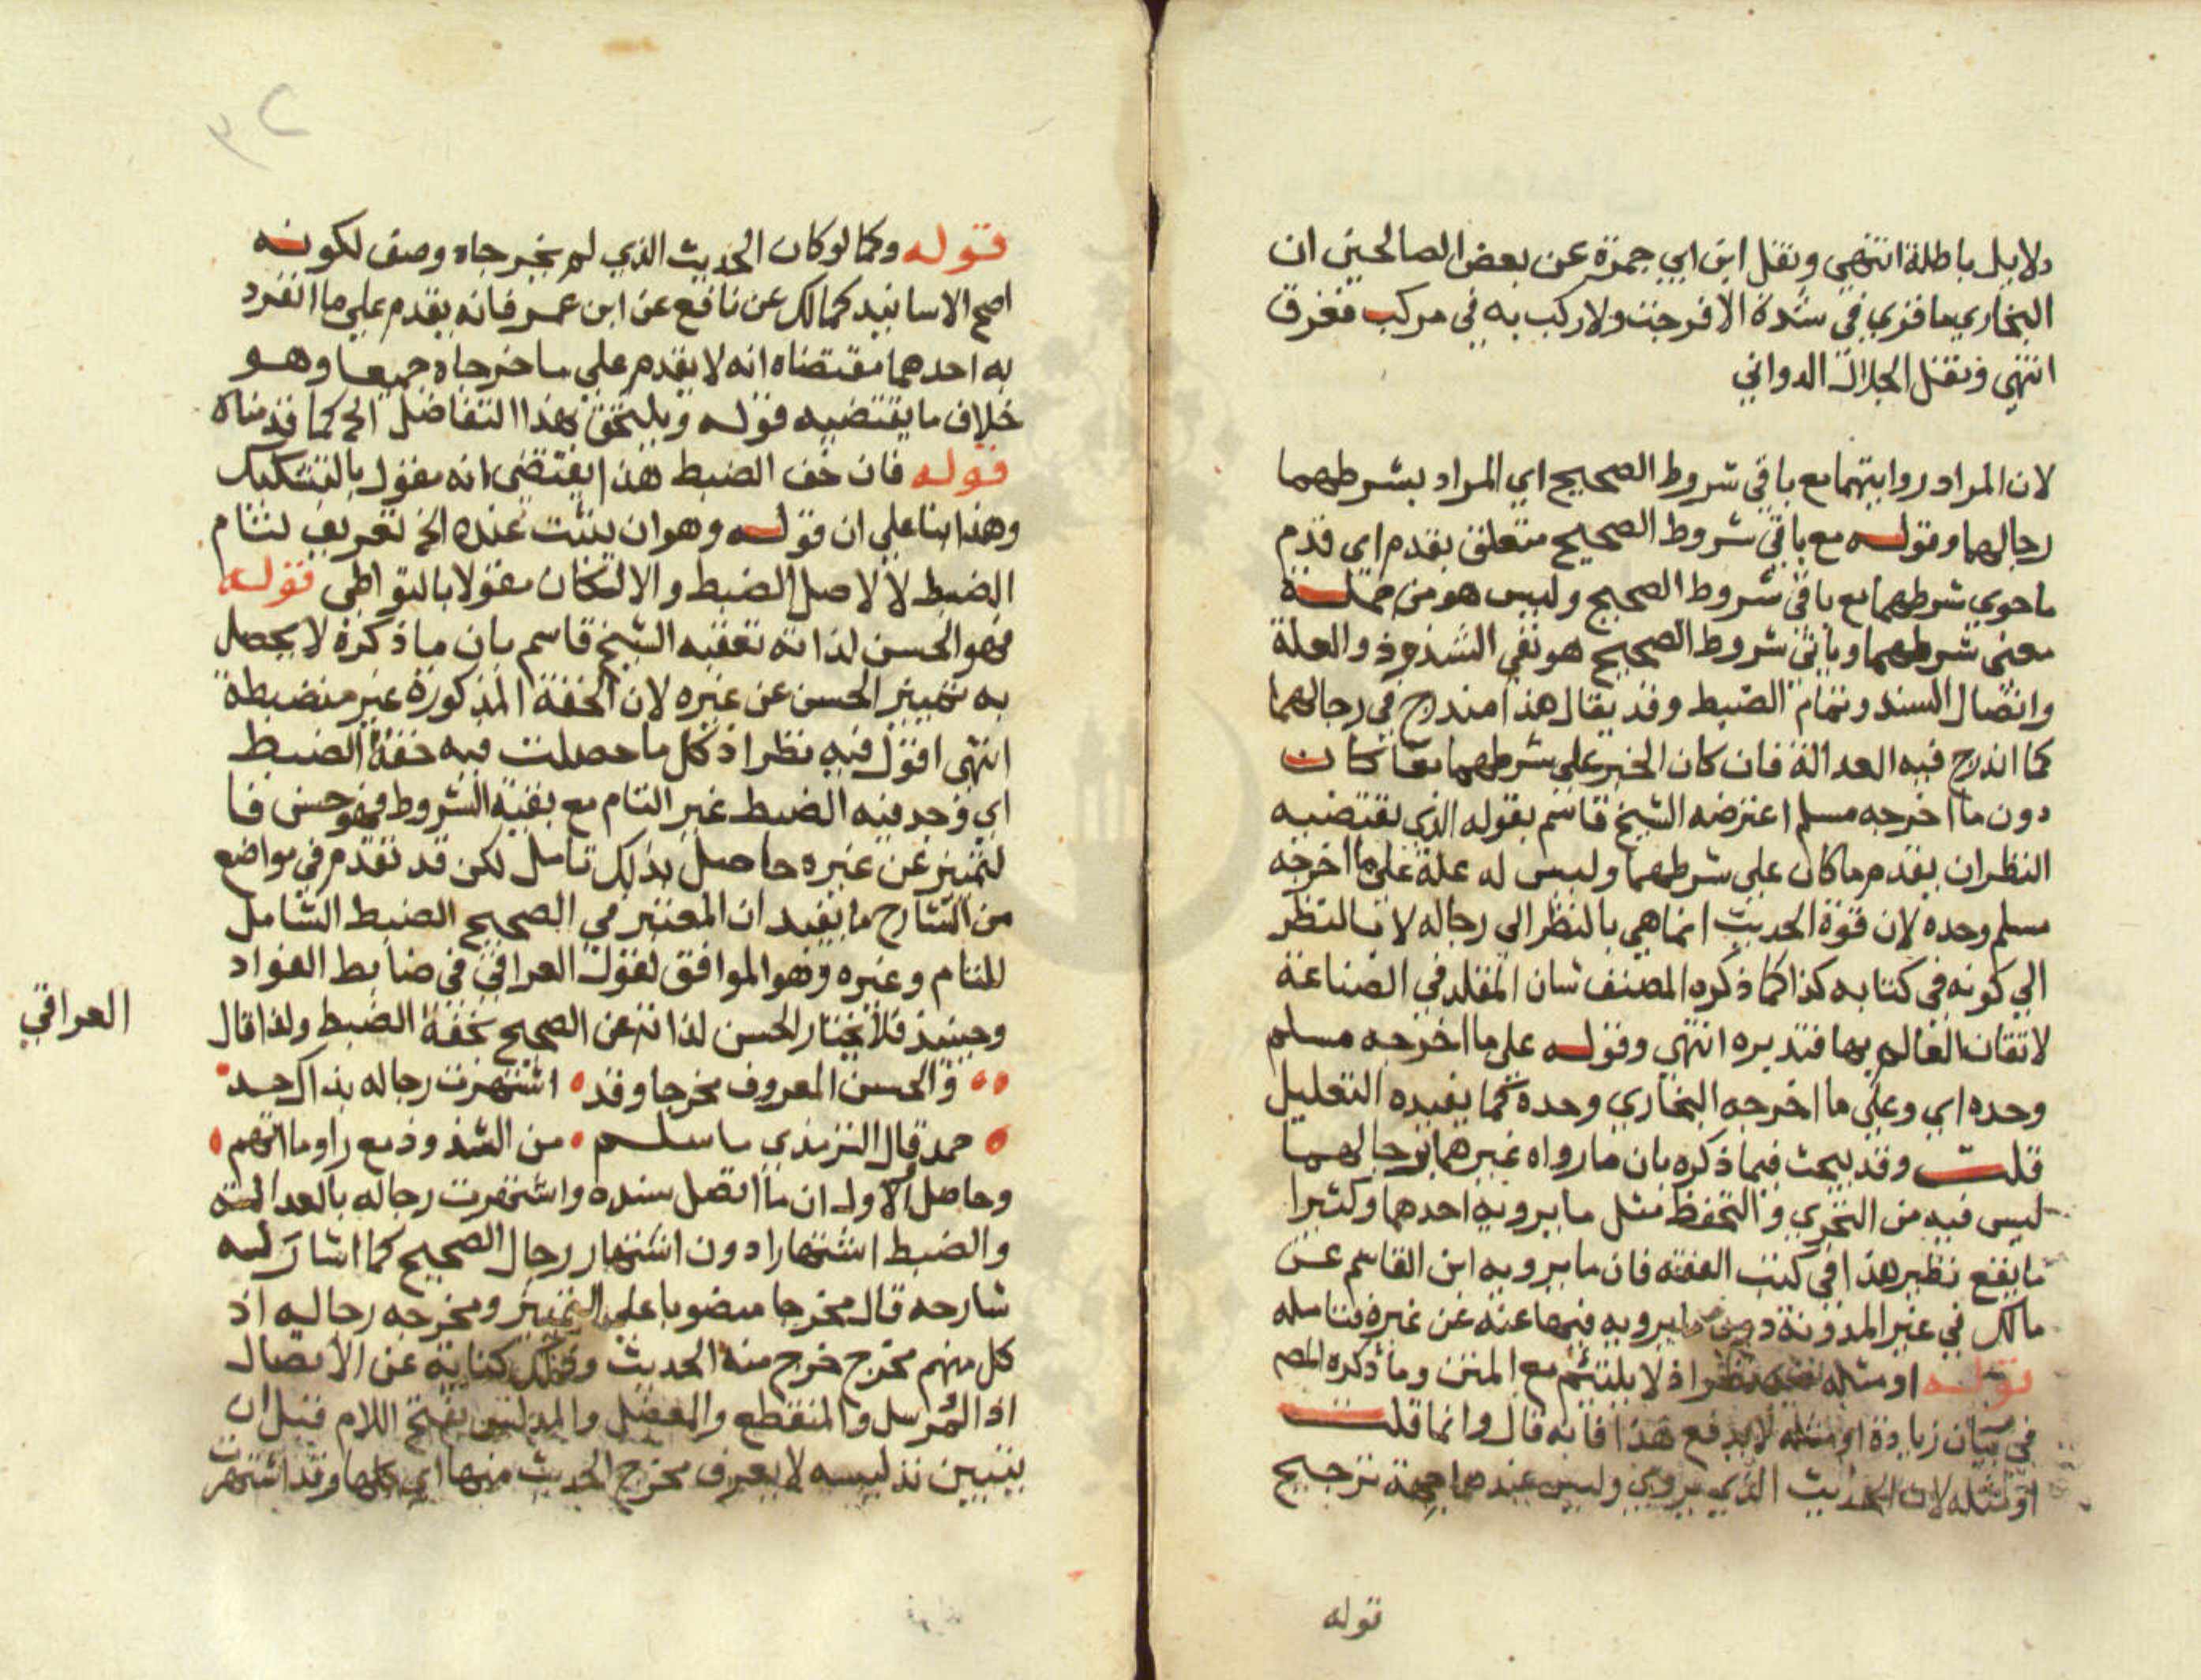 دلايل باطلة انتهي ونقل ابن ابي جمرة عن بعض الصالحين ان
البخاري ما قري في شدة الا فرجت ولا ركب به في مركب فغرق
انتهي ونقل الجلال الدواني
لان المراد روايتهما مع باقي شروط الصحيح اي المراد بشرطهما
رجالهما وقوله مع باقي شروط الصحيح متعلق بقدم اي قدم
ما حوي شرطهما مع باقي شروط الصحيح وليس هو من جملة
معني شرطهما وباقي شروط الصحيح هو نفي الشذوذ والعلة
واتصال السند وتمام الضبط وقد يقال هذا مندرج في رجالهما
كما اندرج فيه العدالة فان كان الخبر علي شرطهما معا كان
دون ما اخرجه مسلم اعترضه الشيخ قاسم بقوله الذي يقتضيه
النظر ان يقدم ما كان علي شرطهما وليس له علة علي ما اخرجه
مسلم وحده لان قوة الحديث انما هي بالنظر الي رجاله لا بالنظر
الي كونه في كتابه كذا كما ذكره المصنف شان المقلد في الصناعة
لاتقان العالم بها فتدبره انتهي وقوله علي ما اخرجه مسلم
وحده اي وعلي ما اخرجه البخاري وحده كما يفيده التعليل
قلت وقد يبحث فيما ذكره بان ما رواه غيرهما برجالهما
ليس فيه من التحري والتحفظ مثل ما يرويه احدهما وكثيرا
ما يقع نظير هذا في كتب الفقه فان ما يرويه ابن القاسم عن
مالك في غير المدونة دون ما يرويه فيها عنه عن غيره فتامله
قوله او مثله فيه نظر اذ لا يلتئم مع المتن وما ذكره المص
في بيان زيادة او مثله لا يدفع هذا فانه قال وانما قلت
او مثله لان الحديث الذي يروي وليس عندهما جهة ترجيح
قوله
قوله وكما لو كان الحديث الذي لم يخرجاه وصف لكونه
اصح الاسانيد كمالك عن نافع عن ابن عمر فانه يقدم علي ما انفرد
به احدهما مقتضاه انه لا يقدم علي ما خرجاه جميعا وهو
خلاف ما يقتضيه قوله ويلتحق بهذا التفاضل الخ كما قدمناه
قوله فان خف الضبط هذا يقتضي انه مقول بالتشكيك
وهذا بنا علي ان قوله وهو ان يثبت عنده الخ تعريف لتام
الضبط لا لاصل الضبط والا لكان مقولا بالتواطي قوله
فهو الحسن لذاته تعقبه الشيخ قاسم بان ما ذكره لا يحصل
به تمييز الحسن عن غيره لان الخفة المذكورة غير منضبطة
انتهي اقول فيه نظر اذ كل ما حصلت فيه خفة الضبط
اي وجد فيه الضبط غير التام مع بقية الشروط فهو حسن فا
لتمييز عن غيره حاصل بذلك تامل لكن قد تقدم في مواضع
من الشارح ما يفيد ان المعتبر في الصحيح الضبط الشامل
للتام وغيره وهو الموافق لقول العراقي في ضابط الفواد
العراقي
وحينئذ فلا يمتاز الحسن لذاته عن الصحيح بخفة الضبط ولذا قال
والحسن المعروف مخرجا وقد اشتهرت رجاله بذاك حد
حمد قال الترمذي ما سلم من الشذوذ مع راو ما اتهم
وحاصل الاول ان ما اتصل سنده واشتهرت رجاله بالعدالة
والضبط اشتهارا دون اشتهار رجال الصحيح كما اشار له
شارحه قال مخرجا منصوبا علي التمييز ومخرجه رجاله اذ
كل منهم مخرج خرج منه الحديث وذلك كناية عن الاتصال
اذ المرسل والمنقطع والمعضل والمدلس بفتح اللام قبل ان
يتبين تدليسه لا يعرف مخرج الحديث منها اي كلها وقد اشتهرت